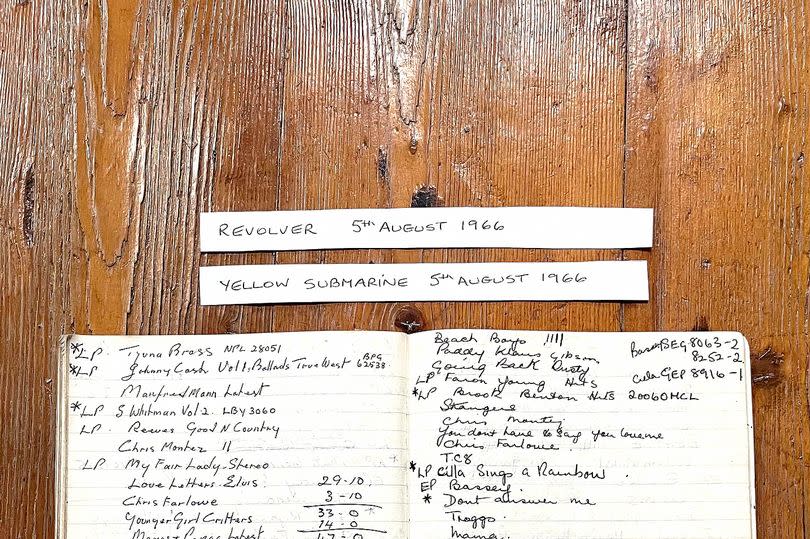 REVOLVER 5th AUGUST 1966
YELLOW SUBMARINE 5th AUGUST 1966
*LP. Tijuna Brass NPL 28051
*LP. Johnny Cash Vol 1, Ballads True West BPG 62538
Manfred Mann Latest
*LP S Whitman Vol 2. LBY 3060
LP. Reeves Good N Country
Chris Montez 11
LP My Fair Lady. Stereo
Love Letters. Elvis 29-10.
Chris Farlowe 3-10
Younger Girl Critters 33-0
14-0
47-0
Beach Boys 1111
Paddy Klaus Gibson
Going Back Dusty
LP Faron Young Hits
*LP Brook Benton Hits 20060 MCL
Strangers
Chris Montez
You dont have to say you love me
Chris Farlowe.
T.C8
*LP Cilla Sings a Rainbow.
EP Bassey.
* Dont answer me
Troggs.
Mama.
BEG 8063-2
8252-2
Cilla GEP 8916-1